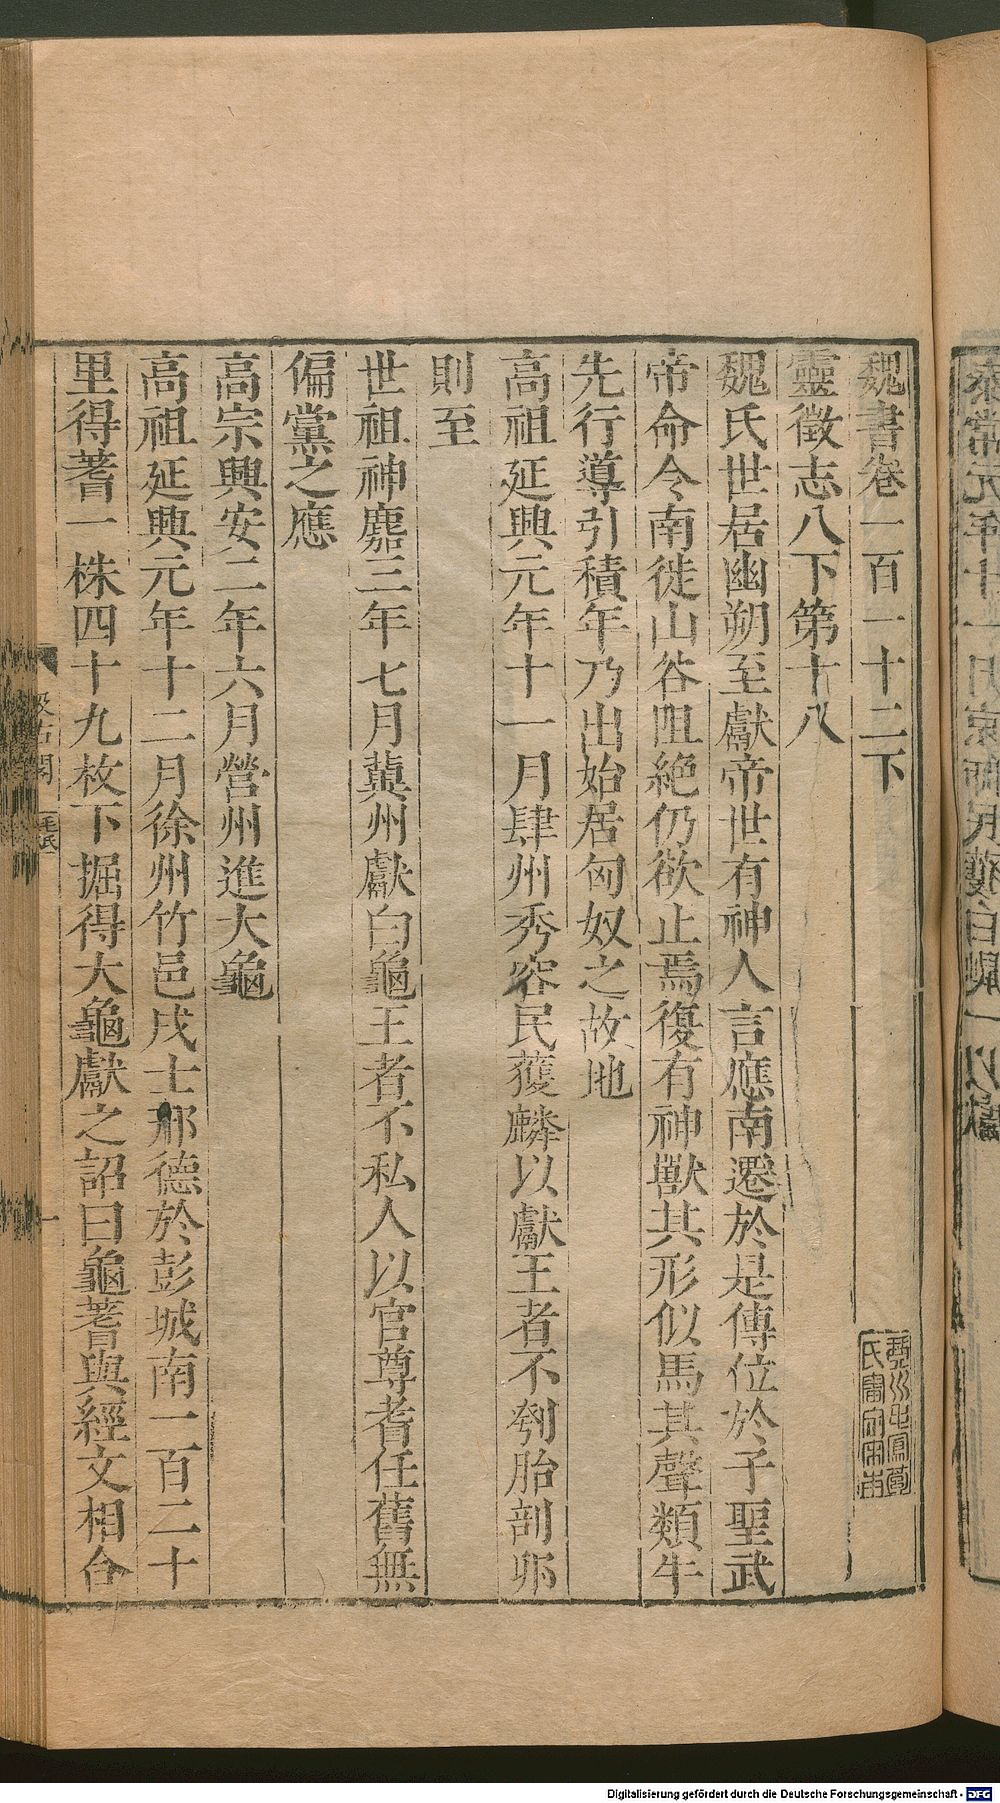 魏書卷一百一十二下
靈徵志八下第十八
魏氏世居幽朔至獻帝世有神人言應南遷於是傳位於子聖武
帝命令南徙山谷阻絶仍欲止焉復有神獸其形似馬其聲類牛
先行導引積年乃出始居匈奴之故地
高祖延興元年十一月肆州秀容民獲麟以獻王者不刳胎剖卵
則至
世祖神䴥三年七月冀州獻白龜王者不私人以官尊耆任舊無
偏黨之應
高宗興安二年六月營州進大龜
高祖延興元年十二月徐州竹邑戍士邢德於彭城南一百二十
里得蓍一株四十九枚下掘得大龜獻之詔曰龜蓍與經文相合
汲古閣
毛氏
一
Digitalisierung gefördert durch die Deutsche Forschungsgemeinschaft - DFG